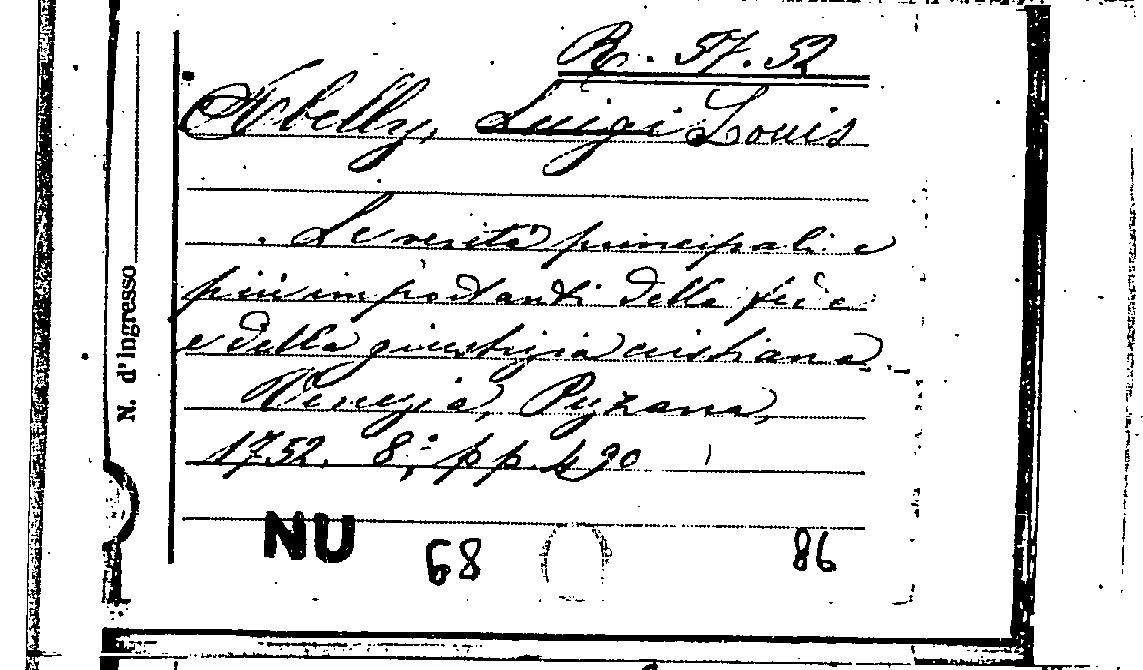 R. 57. 52
Abelly, Luigi Louis
Le verità principali e
più importanti della fede
e della giustizia cristiana.
Venezia, Pezzana,
1752. 8°; pp. 490
N. d'ingresso
NU 68 86